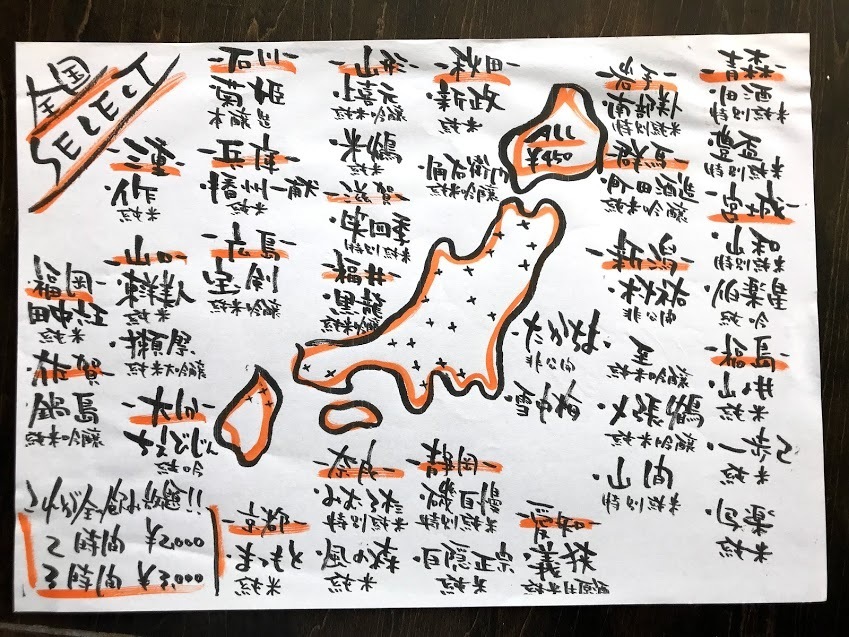 全国
SELECT
青森
・田酒
特別純米
・豊盃
特別純米
宮城
・山和
特別純米
・伯楽星
純吟
福島
・山井
純米
・一歩己
純米
・写楽
純米
岩手
・南部美人
特別純米
群馬
・町田酒造
純米吟醸
新潟
・村祐
非公開
・至
純米吟醸
・〆張鶴
純米吟醸
・山間
特別純米
・たかちよ
非公開
・雪中梅
ALL
¥450
秋田
・新政
純米
・角右衛門
純米吟醸
山形
・喜元
純米吟醸
・米鶴
純米
滋賀
・笑四季
特別純米
福井
・黒龍
純米吟醸
石川
・菊姫
本醸造
兵庫
・播州一献
純米
広島
・宝剣
純米吟醸
三重
・作
純米
山口
・東洋美人
純米
・獺祭
純米大吟醸
大分
・ちえびじん
純吟
福岡
田中六五
純米
佐賀
鍋島
純米吟醸
愛知
・義侠
静岡
・花の自慢
特別純米
・白隠正宗
純米
奈良
・みむろ杉
特別純米
・風の森
純米
京都
・まつもと
純米
これが全て飲み放題!!
2時間 ¥2,000
3時間 ¥3,000